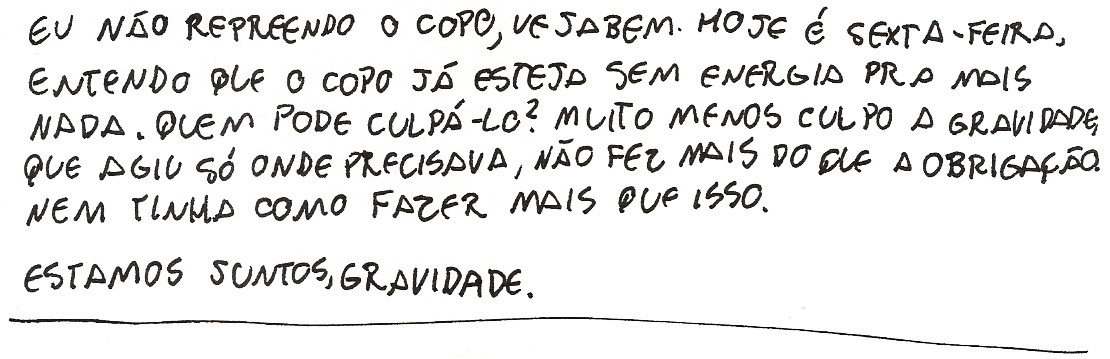 EU NÃO REPREENDO O COPO, VEJABEM. HOJE É SEXTA-FEIRA,
ENTENDO QUE O COPO JÁ ESTEJA SEM ENERGIA PRA MAIS
NADA. QUEM PODE CULPÁ-LO? MUITO MENOS CULPO A GRAVIDADE,
QUE AGIU SÓ ONDE PRECISAVA, NÃO FEZ MAIS DO QUE A OBRIGAÇÃO.
NEM TINHA COMO FAZER MAIS QUE ISSO.
ESTAMOS JUNTOS, GRAVIDADE.